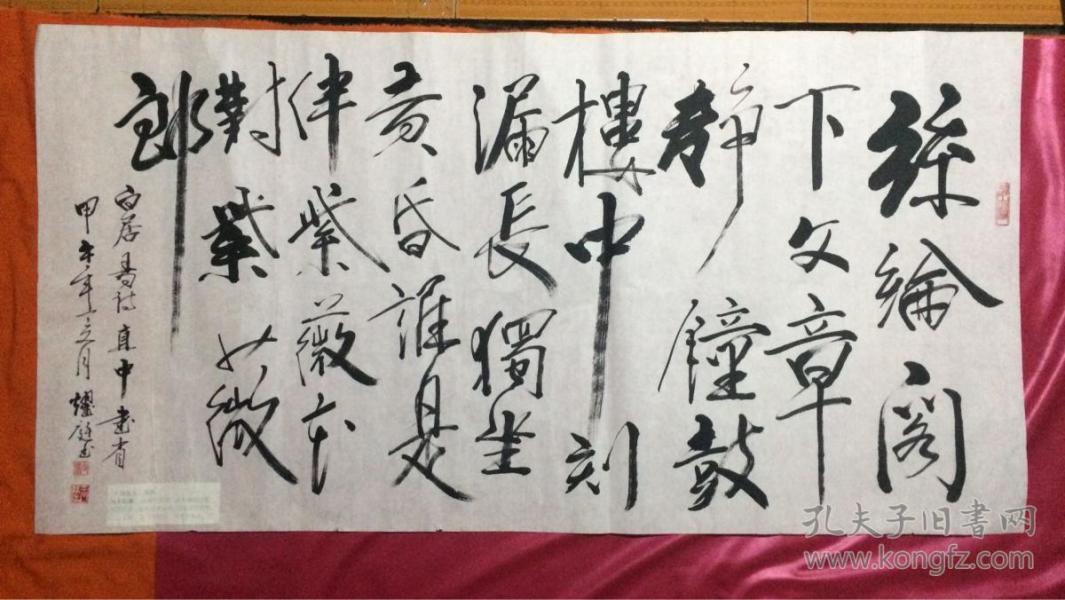 絲綸阁
下文章
静鐘鼓
樓中刻
漏長獨坐
黄昏誰是
伴紫薇花
對紫薇
郎
白居易诗直中書省
甲午年十二月耀庭书
孔夫子旧书网
www.kongfz.com